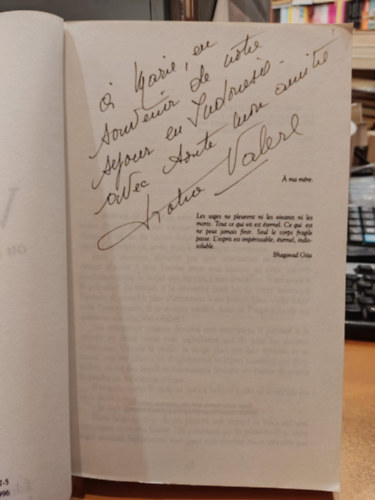 à Marie, en
souvenir de notre
séjour en Indonésie -
avec toute mon amitié
Valere
A ma mère.
Les sages ne pleurent ni les vivants ni les
morts. Tout ce qui vit est éternel. Ce qui est
ne peut jamais finir. Seul le corps fragile
passe. L'esprit est impérissable, éternel, indis-
soluble.
Bhagavad Gita